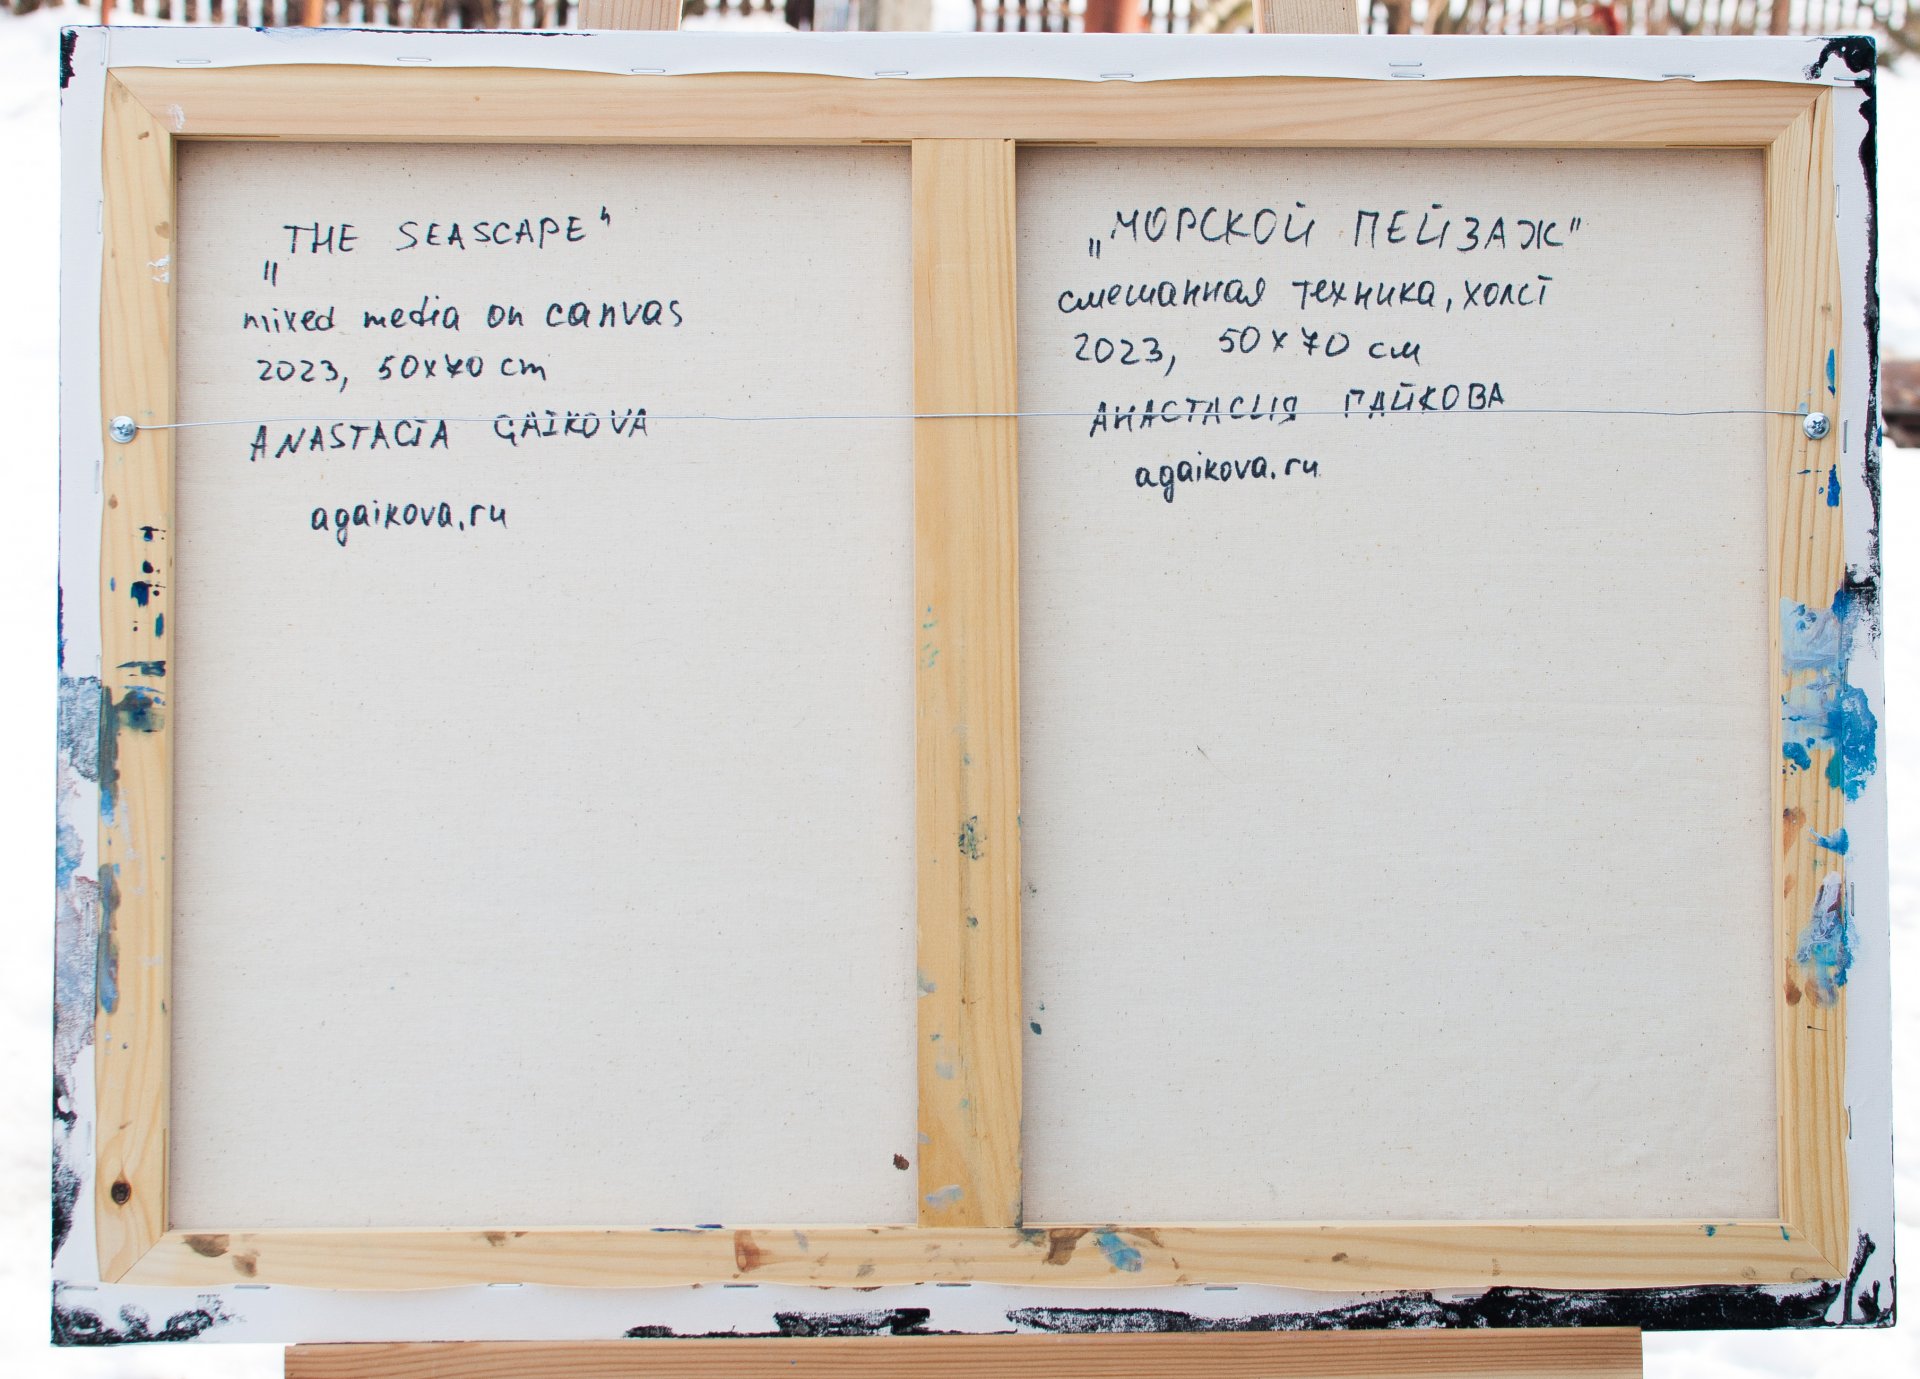 „THE SEASCAPE"
mixed media on canvas
2023, 50x70 cm
ANASTACIA GAIKOVA
agaikova.ru
„МОРСКОЙ ПЕЙЗАЖ"
смешанная техника, холст
2023, 50x70 см
АНАСТАСИЯ ГАЙКОВА
agaikova.ru